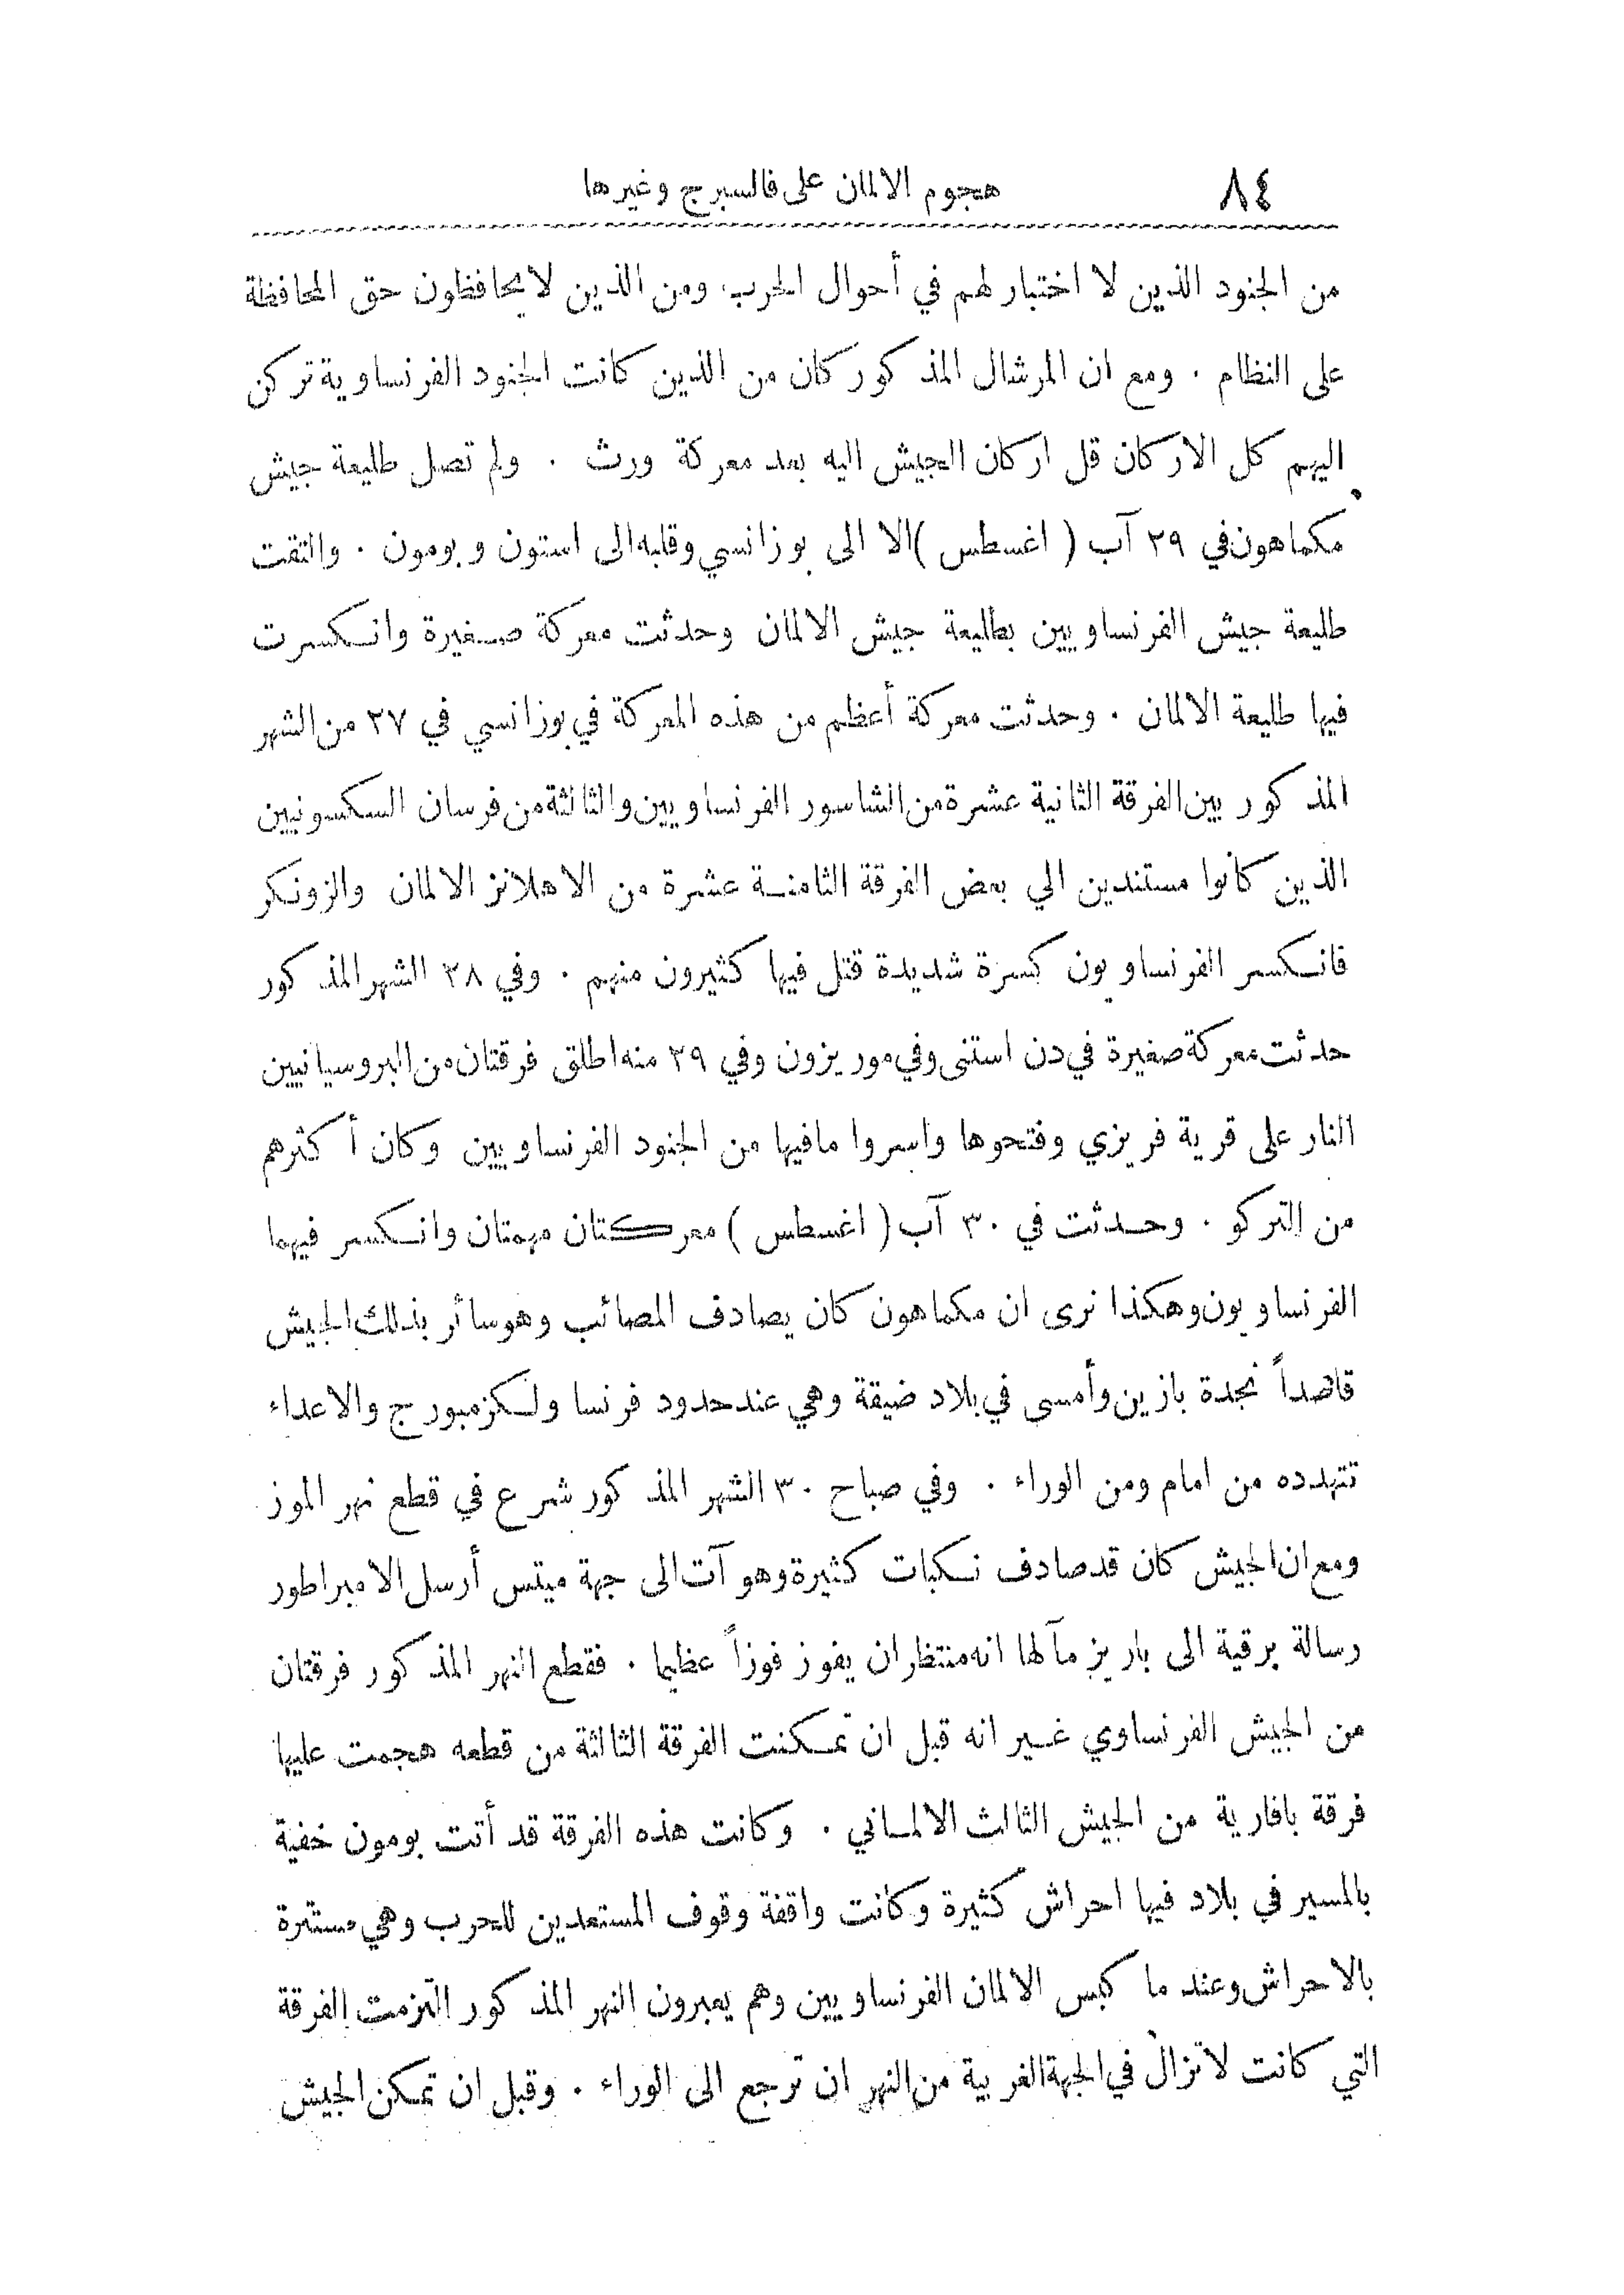 ٨٤ هجوم الالمان على فالسبرج وغيرها
من الجنود الذين لا اختبار لهم في أحوال الحرب ومن الذين لا يحافظون حق المحافظة
على النظام . ومع ان المرشال المذكور كان من الذين كانت الجنود الفرنساوية تركن
اليهم كل الاركان قل اركان الجيش اليه بعد معركة ورث . ولم تصل طليعة جيش
مكماهون في ٢٩ آب ( اغسطس ) الا الى بوزانسي وقلبه الى استون وبومون . والتقت
طليعة جيش الفرنساويين بطليعة جيش الالمان وحدثت معركة صغيرة وانكسرت
فيها طليعة الالمان . وحدثت معركة أعظم من هذه المعركة في بوزانسي في ٢٧ من الشهر
المذكور بين الفرقة الثانية عشرة من الشاسور الفرنساويين والثالثة من فرسان السكسونيين
الذين كانوا مستندين الي بعض الفرقة الثامنة عشرة من الاهلانز الالمان والزونكر
فانكسر الفرنساويون كسرة شديدة قتل فيها كثيرون منهم . وفي ٢٨ الشهر المذكور
حدثت معركة صغيرة في دن استنى وفي موريزون وفي ٢٩ منه اطلق فرقتان من البروسيانيين
النار على قرية فريزي وفتحوها واسروا مافيها من الجنود الفرنساويين وكان أكثرهم
من التركو . وحدثت في ٣٠ آب ( اغسطس ) معركتان مهمتان وانكسر فيهما
الفرنساويون وهكذا نرى ان مكماهون كان يصادف المصائب وهو سائر بذلك الجيش
قاصداً نجدة بازين وأمسى في بلاد ضيقة وهي عند حدود فرنسا ولكزمبورج والاعداء
تتهدده من امام ومن الوراء . وفي صباح ٣٠ الشهر المذكور شرع في قطع نهر الموز
ومع ان الجيش كان قد صادف نكبات كثيرة وهو آت الى جهة ميتس أرسل الامبراطور
رسالة برقية الى باريز مآلها انه منتظر ان يفوز فوزاً عظيما . فقطع النهر المذكور فرقتان
من الجيش الفرنساوي غير انه قبل ان تمكنت الفرقة الثالثة من قطعه هجمت عليها
فرقة بافارية من الجيش الثالث الالماني . وكانت هذه الفرقة قد أتت بومون خفية
بالمسير في بلاد فيها احراش كثيرة وكانت واقفة وقوف المستعدين للحرب وهي مستترة
بالاحراش وعند ما كبس الالمان الفرنساويين وهم يعبرون النهر المذكور التزمت الفرقة
التي كانت لا تزال في الجهة الغربية من النهر ان ترجع الى الوراء . وقبل ان تمكن الجيش